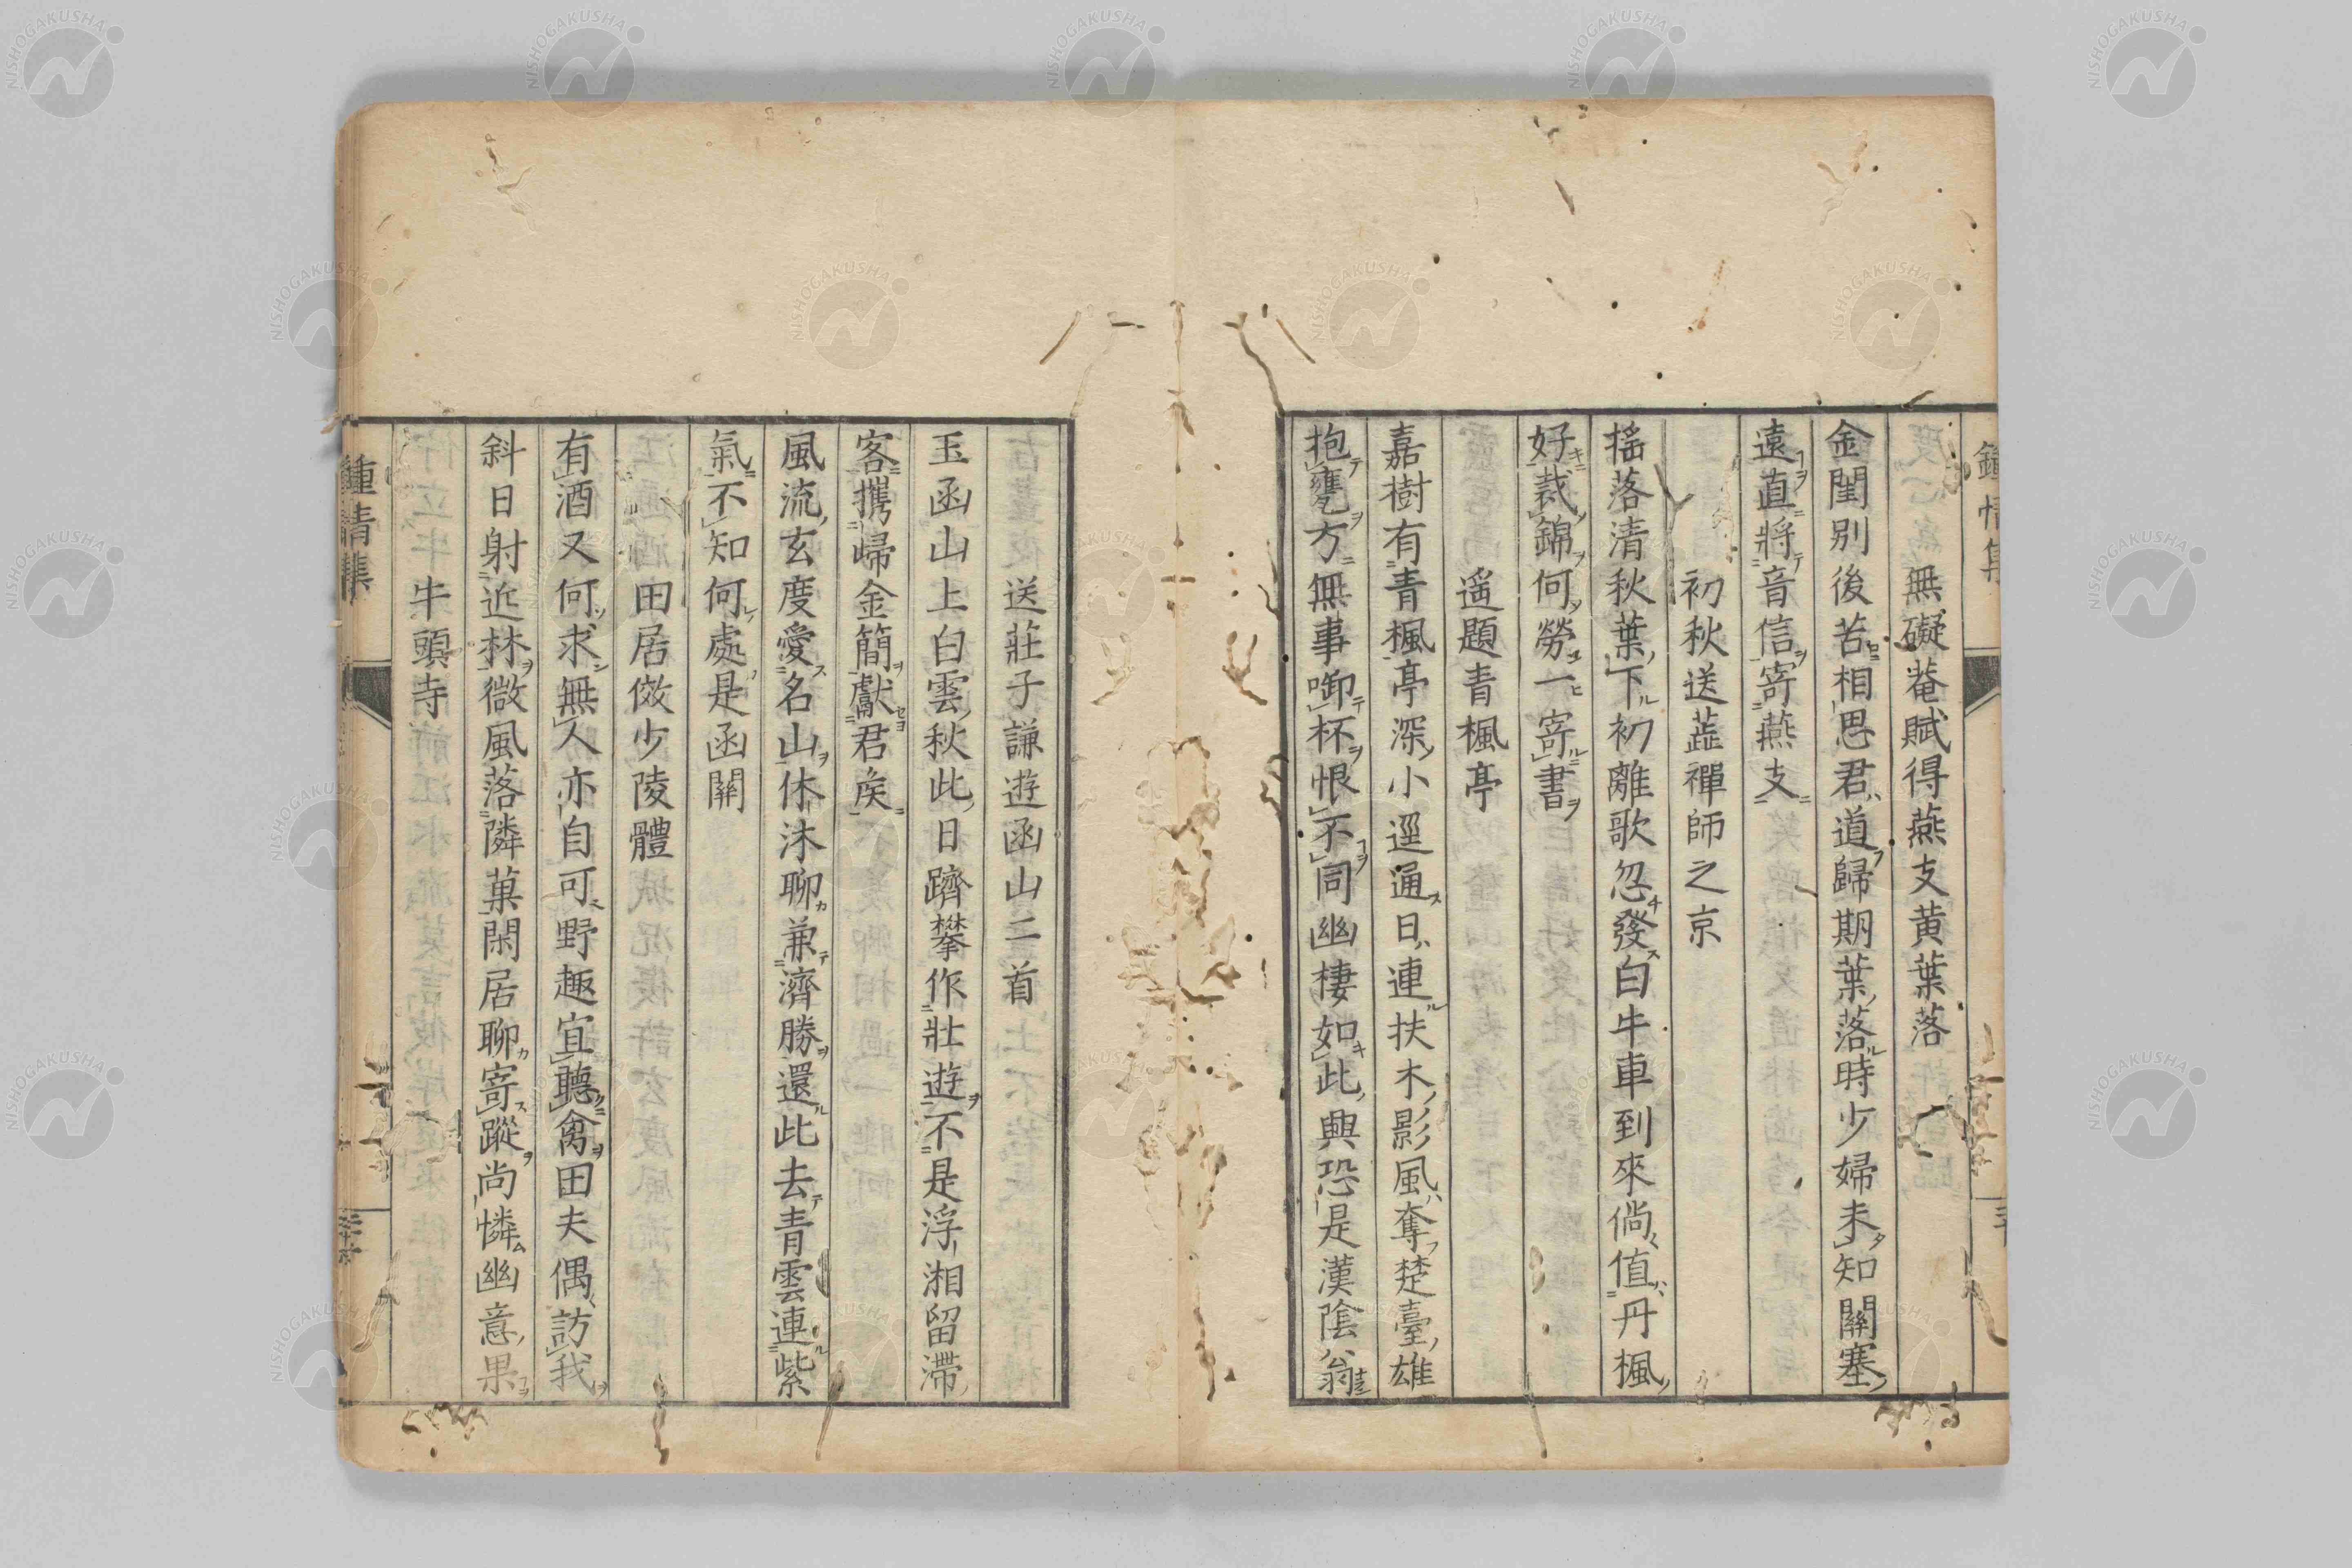 無礙菴賦得燕支黄葉落
金閨別後苦相思君道歸期葉落時少婦未知關塞
遠直將音信寄燕支
初秋送蕋禪師之京
搖落清秋葉下初離歌忽發白牛車到來倘値丹楓
好裁錦何勞一寄書
遥題青楓亭
嘉樹有青楓亭深小逕通日連扶木影風奪楚臺雄
抱甕方無事啣杯恨不同幽棲如此興恐是漢陰翁
送莊子謙遊函山二首
玉函山上白雲秋此日躋攀作壯遊不是浮湘留滯
客攜歸金簡獻君矦
風流玄度愛名山休沐聊兼濟勝還此去青雲連紫
氣不知何處是函關
田居傚少陵體
有酒又何求無人亦自可野趣宜聽禽田夫偶訪我
斜日射近林微風落隣菓閑居聊寄蹤尚憐幽意果
牛頭寺
鍾情集
NISHOGAKUSHA